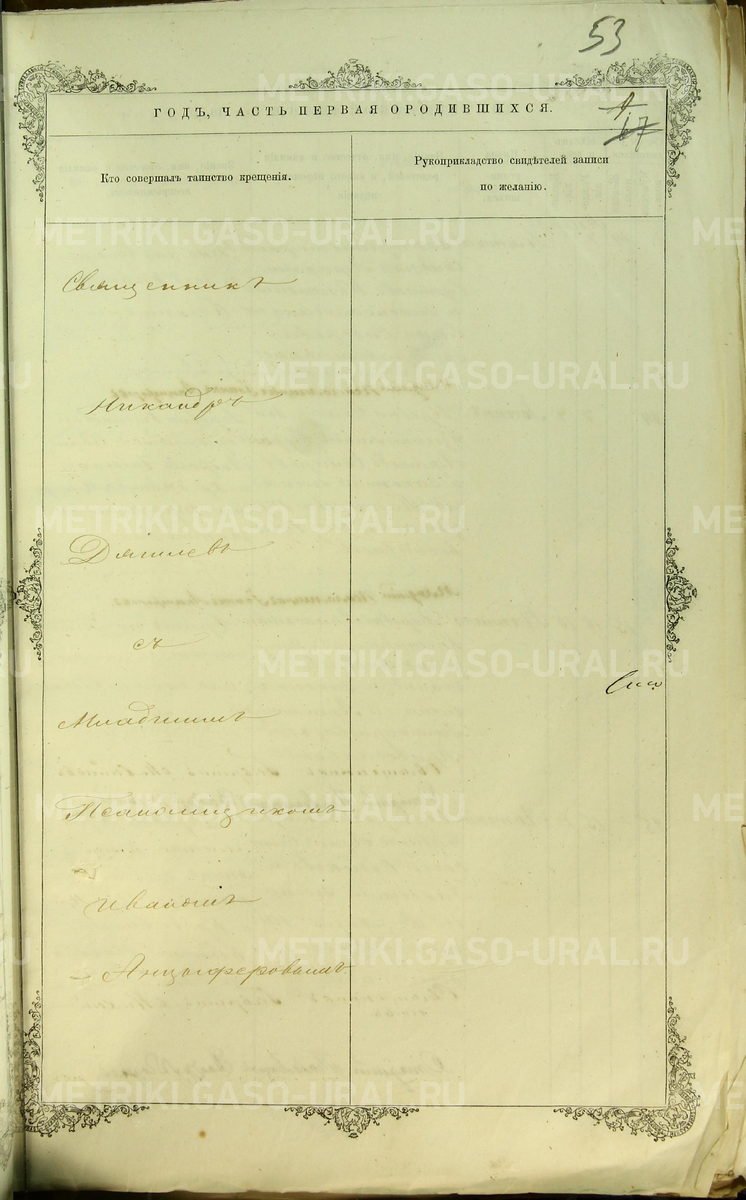 53
ГОДЪ, ЧАСТЬ ПЕРВАЯ ОРОДИВШИХСЯ.
67
Кто совершалъ таинство крещенія.
Рукоприкладство свидѣтелей записи
по желанію.
Священникъ
Никандръ
Дягилевъ
съ
Младшимъ
Псаломщикомъ
Иваномъ
Анцыферовымъ
METRIKI.GASO-URAL.RU